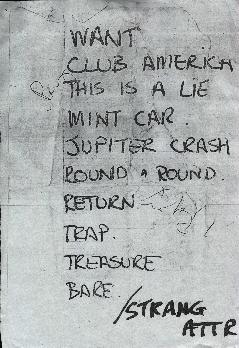 WANT
CLUB AMERICA
THIS IS A LIE
MINT CAR.
JUPITER CRASH
ROUND & ROUND.
RETURN
TRAP.
TREASURE
BARE.
/STRANG
ATTR